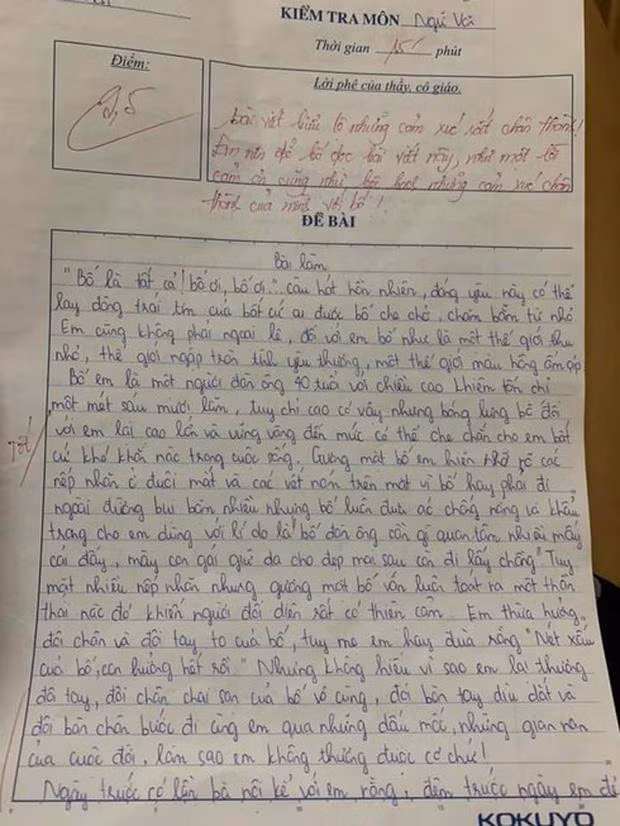 KIỂM TRA MÔN Ngữ Văn
Thời gian 15' phút
Điểm:
9,5
Lời phê của thầy, cô giáo.
Bài viết biểu lộ những cảm xúc rất chân thành!
Em nên để bố đọc bài viết này, như một lời
cảm ơn cũng như bộc bạch những cảm xúc chân
thành của mình với bố!
ĐỀ BÀI
Bài làm
"Bố là tất cả! bố ơi, bố ơi." câu hát hồn nhiên, đáng yêu này có thể
lay động trái tim của bất cứ ai được bố che chở, chăm bẵm từ nhỏ
Em cũng không phải ngoại lệ, đối với em bố như là một thế giới thu
nhỏ, thế giới ngập tràn tình yêu thương, một thế giới màu hồng ấm áp.
Bố em là một người đàn ông 40 tuổi với chiều cao khiêm tốn chỉ
một mét sáu mươi lăm, tuy chỉ cao có vậy nhưng bóng lưng bố đối
với em lại cao lớn và vững vàng đến mức có thể che chắn cho em bất
cứ khó khăn nào trong cuộc sống. Gương mặt bố em hiện rõ các
nếp nhăn ở đuôi mắt và các vết nám trên mặt vì bố hay phải đi
ngoài đường bụi bặm nhiều nhưng bố luôn đưa áo chống nắng và khẩu
trang cho em dùng với lí do là "bố đàn ông cần gì quan tâm nhiều mấy
cái đấy, mày con gái giữ da cho đẹp mai sau còn đi lấy chồng" Tuy
mặt nhiều nếp nhăn nhưng gương mặt bố vốn luôn toát ra một thần
thái nào đó khiến người đối diện rất có thiện cảm. Em thừa hưởng
đôi chân và đôi tay to của bố, tuy mẹ em hay đùa rằng "Nét xấu
của bố, con hưởng hết rồi." Nhưng không hiểu vì sao em lại thương
đôi tay, đôi chân chai sạn của bố vô cùng, đôi bàn tay dìu dắt và
đôi bàn chân bước đi cùng em qua những dấu mốc, những gian nan
của cuộc đời, làm sao em không thương được cơ chứ!
Ngày trước có lần bà nội kể với em rằng, đêm trước ngày em đi
tốt
KOKUYO